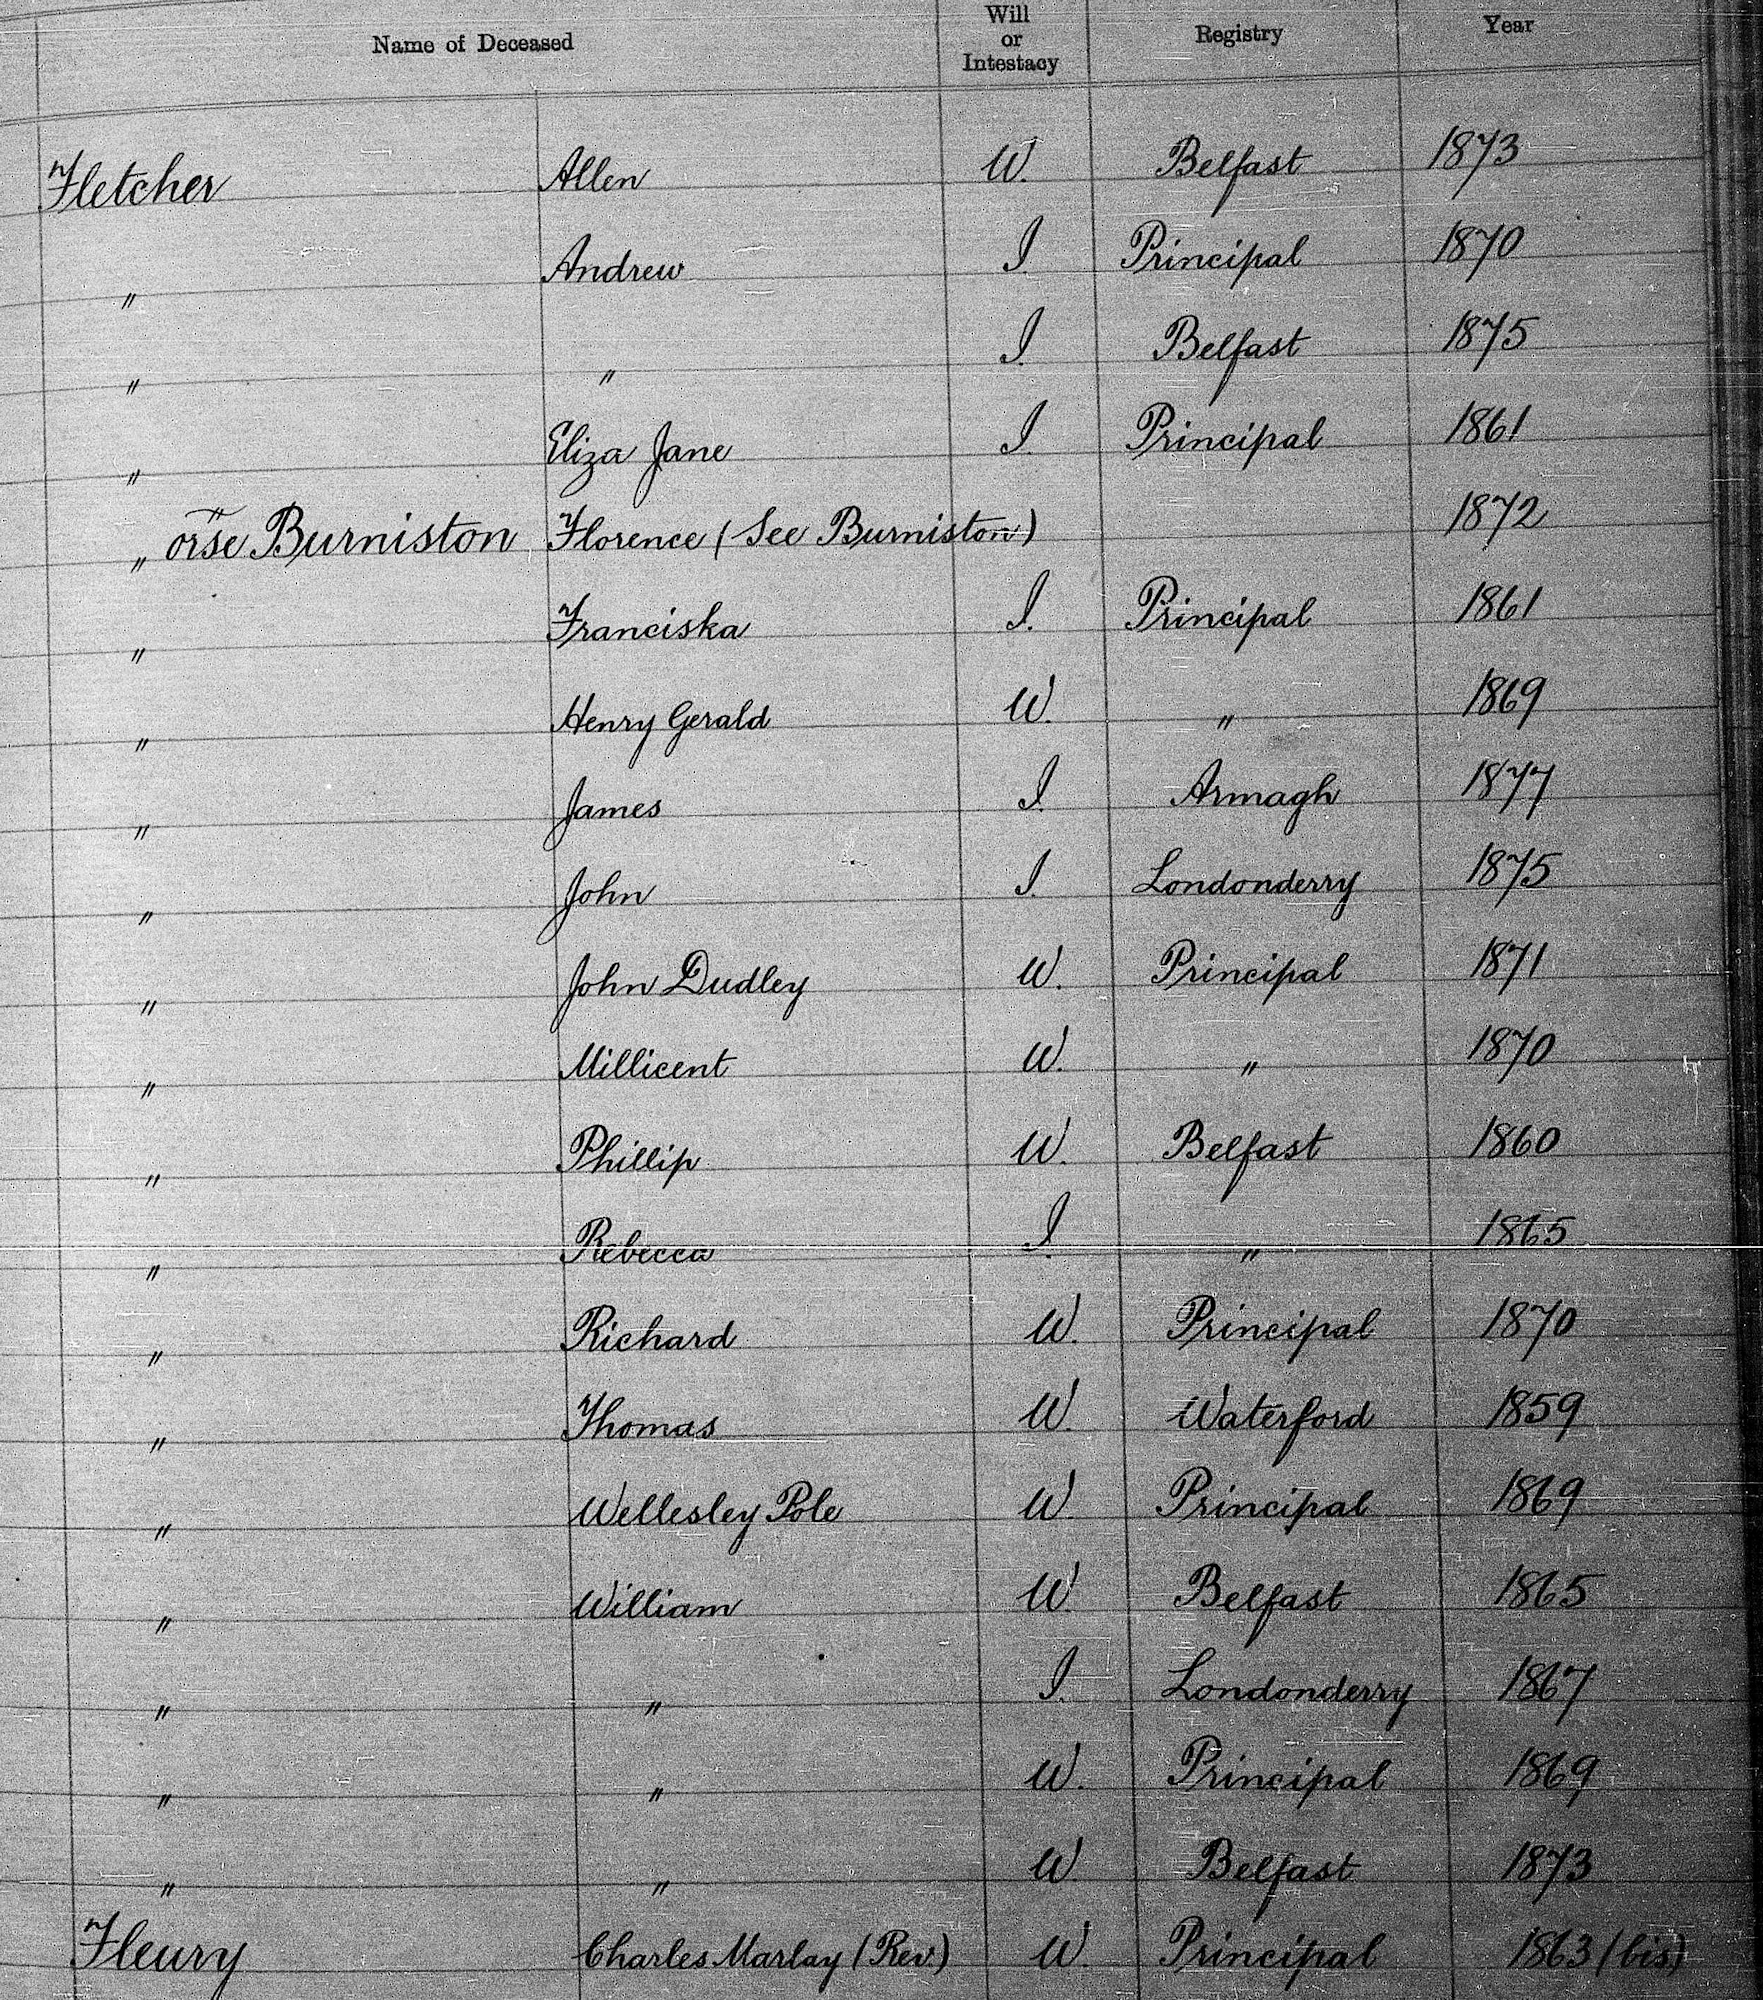 Name of Deceased Will or Intestacy Registry Year
Fletcher Allen W. Belfast 1873
" Andrew I. Principal 1870
" " I. Belfast 1875
" Eliza Jane I. Principal 1861
" orse Burniston Florence (See Burniston) 1872
" Franciska I. Principal 1861
" Henry Gerald W. " 1869
" James I. Armagh 1877
" John I. Londonderry 1875
" John Dudley W. Principal 1871
" Millicent W. " 1870
" Phillip W. Belfast 1860
" Rebecca I. " 1865
" Richard W. Principal 1870
" Thomas W. Waterford 1859
" Wellesley Pole W. Principal 1869
" William W. Belfast 1865
" " I. Londonderry 1867
" " W. Principal 1869
" " W. Belfast 1873
Fleury Charles Marlay (Rev.) W. Principal 1863 (bis)